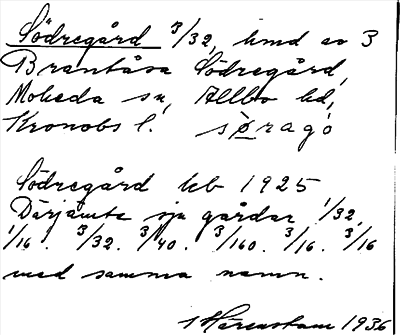 Södregård 3/32, hmd av 3
Brantåsa Södregård,
Moheda sn, Allbo hd,
Kronobs l. søragó
Södregård kb 1925
Därjämte sju gårdar 1/32,
1/16. 3/32. 3/40. 3/160. 3/16. 3/16
med samma namn.
1936